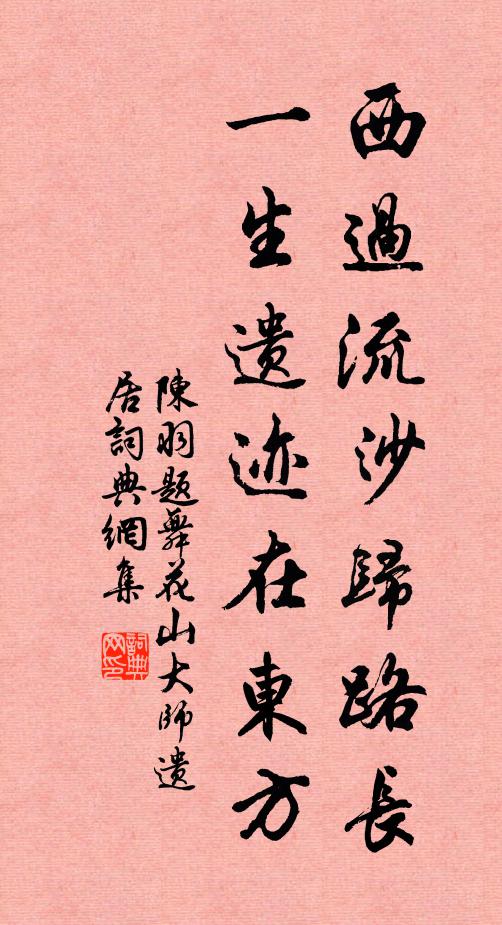 西過流沙歸路長
一生遺迹在東方
陳羽題舞花山大師遺
居詞典網集
詞典
网印